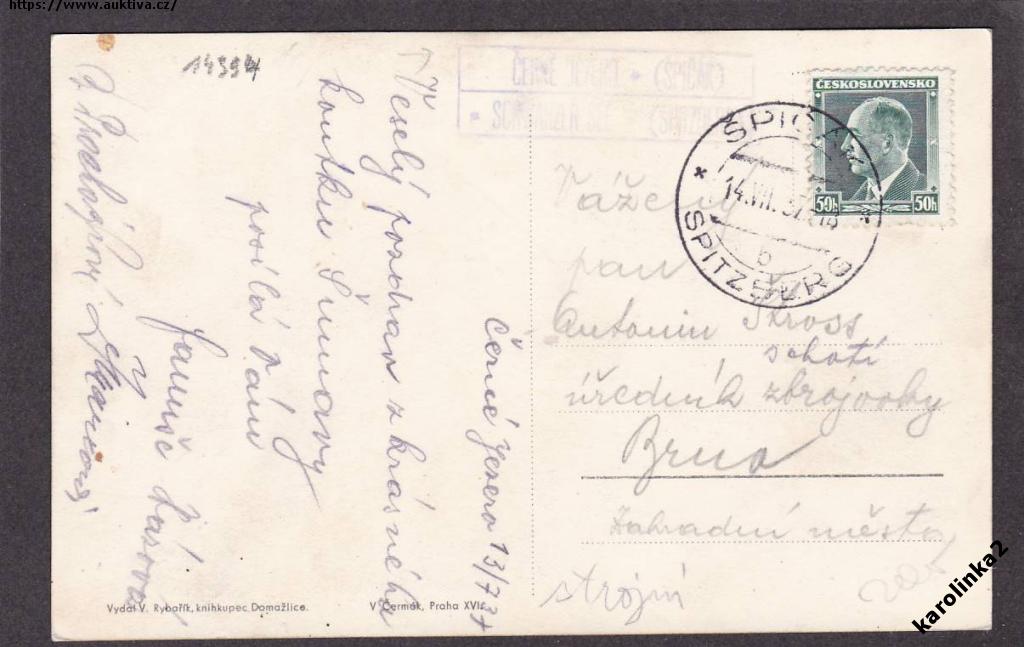 https://www.auktiva.cz/
14994
Černé Jezero 13/7 37
Veselý pozdrav z krásného
koutku Šumavy
posílá Vám
Jarmila
ČERNÉ JEZERO * (ŠPIČÁK)
* SCHWARZER SEE (SPITZBERG)
ČESKOSLOVENSKO
50h 50h
ŠPIČÁK
14.VII.37
b
* SPITZBERG *
Vážený
pan
Antonín Skross
s chotí
úředník zbrojovky
Brno
Zahradní město
strojní
Vydal V. Rybařík, knihkupec Domažlice.
V. Čermák, Praha XVI.
karolinka2